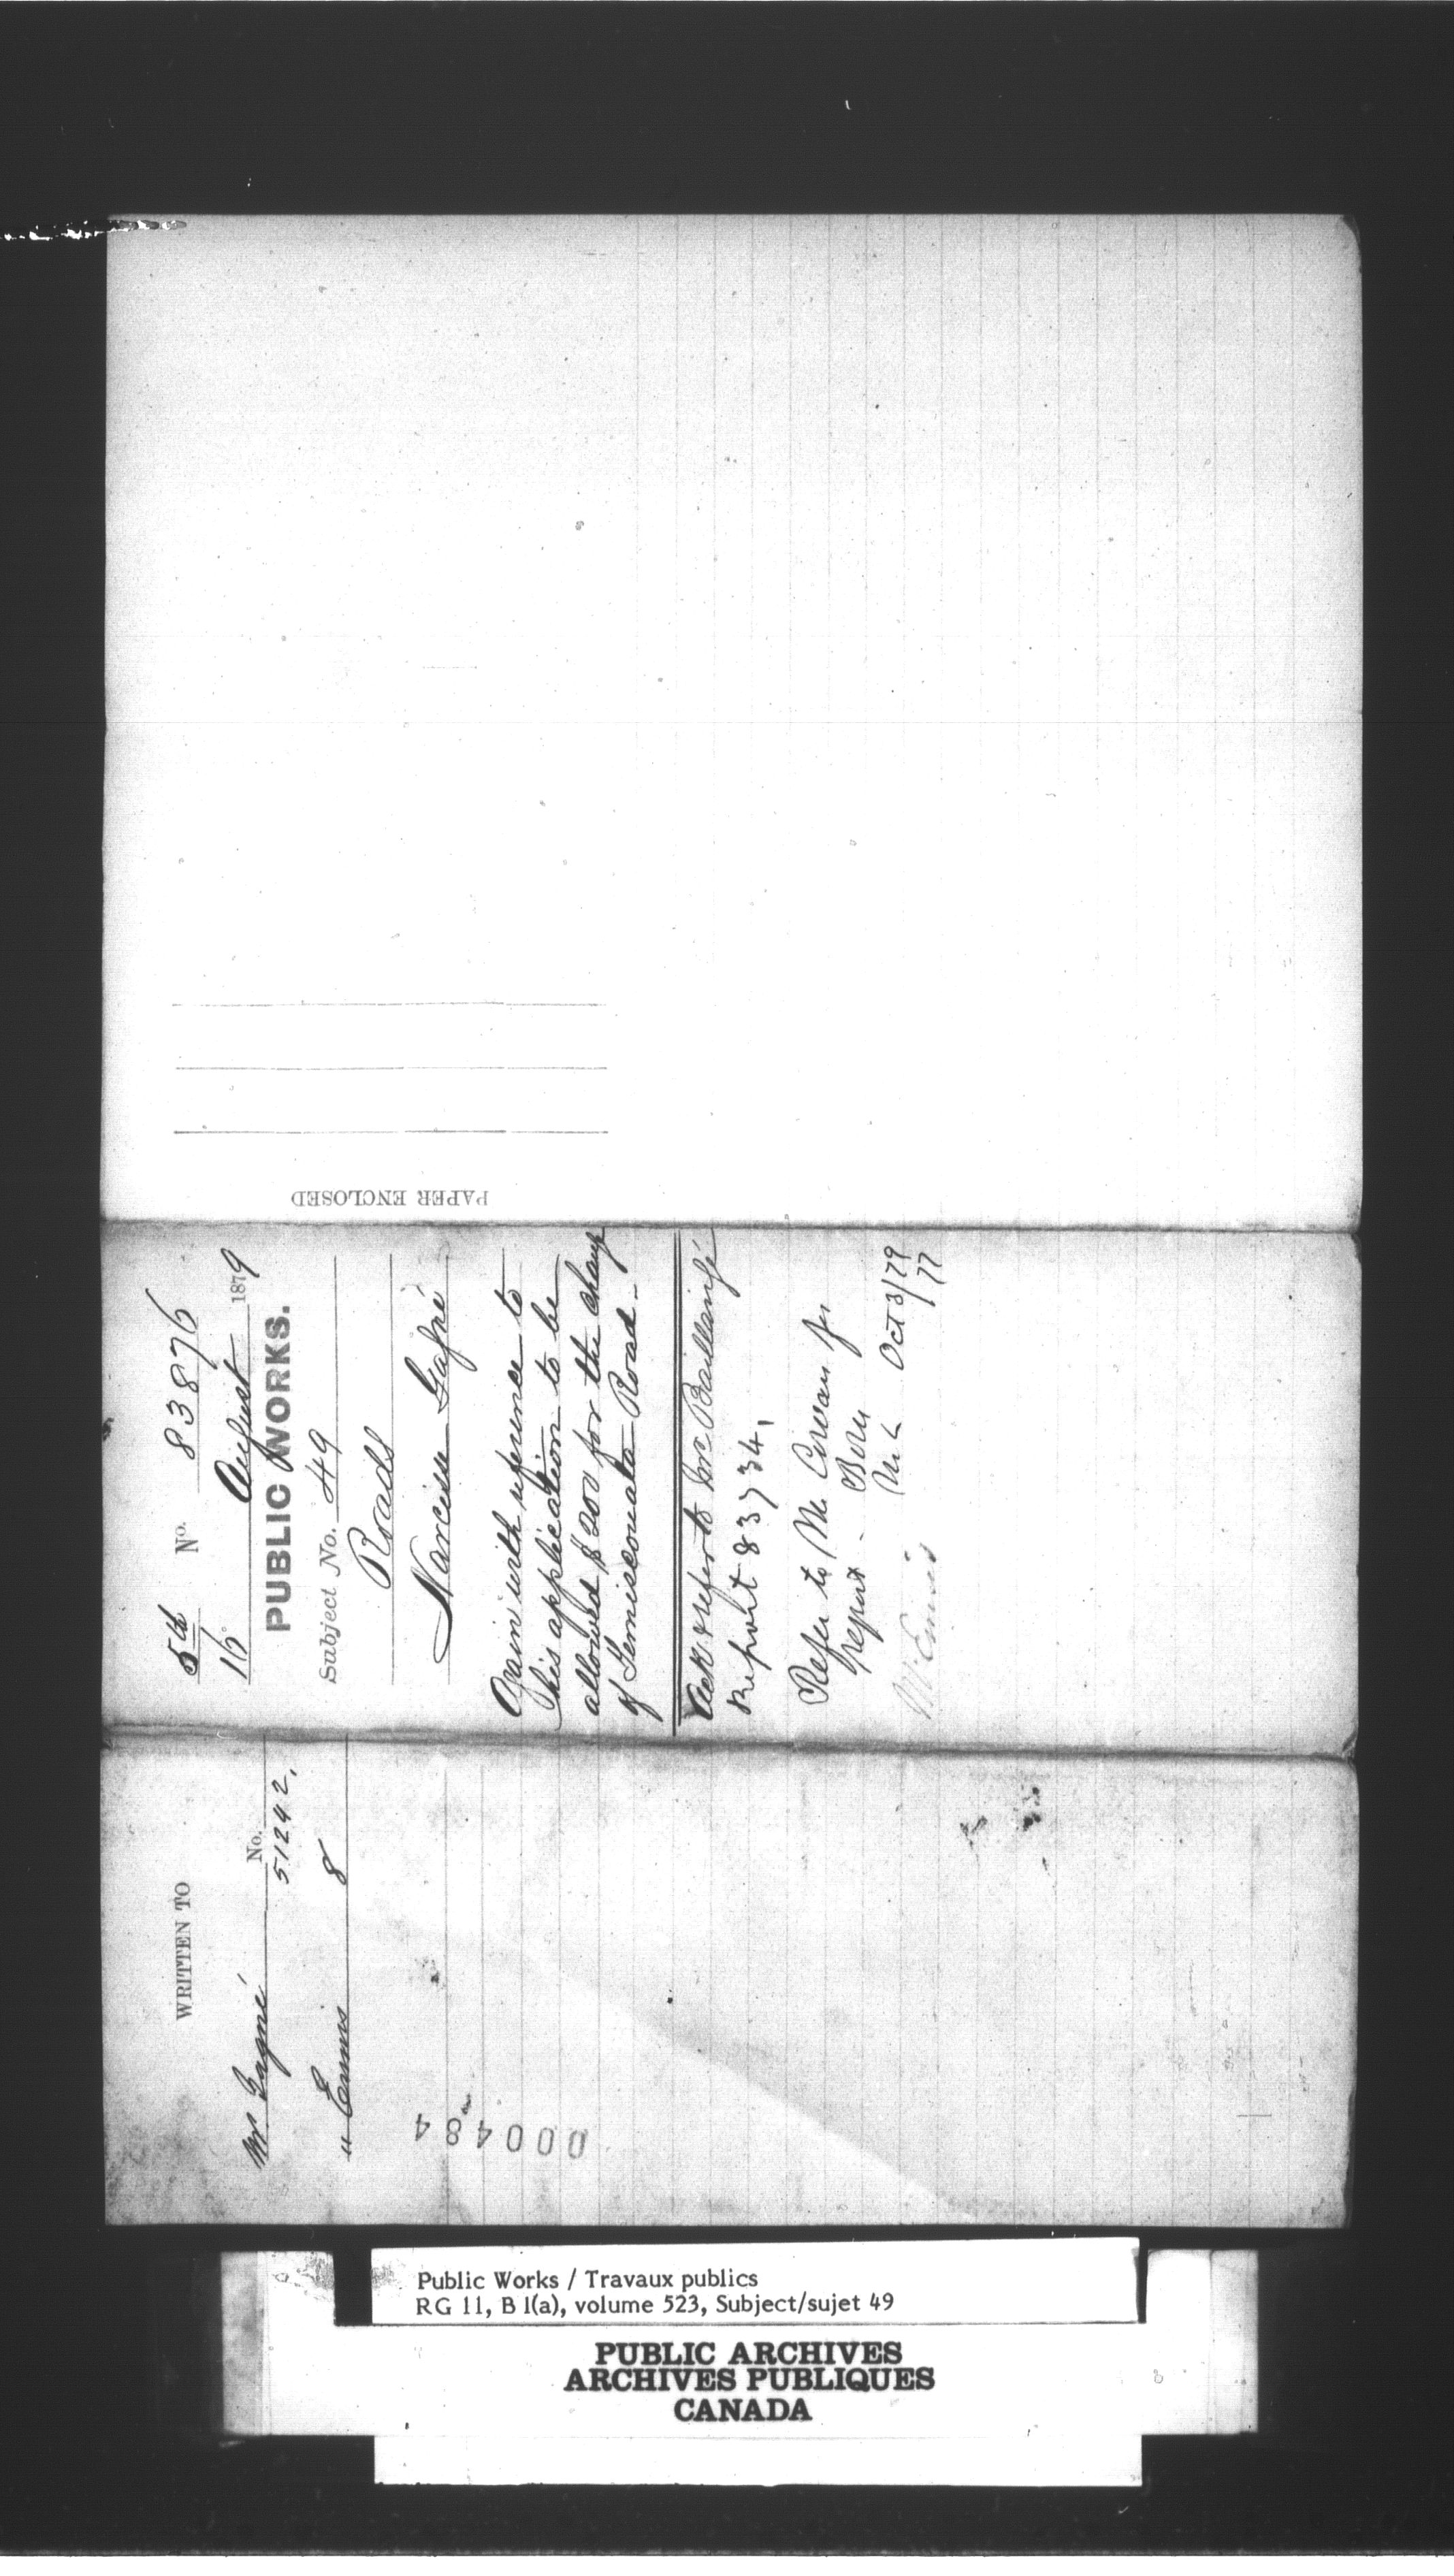 PAPER ENCLOSED
5th No. 83876
16 August 1879
PUBLIC WORKS.
Subject No. 49
Roads
Narcisse Gagné
Again with reference to
his application to be
allowed $200 for the change
of Temiscouata Road.
Ack & refer to Mr Baillairgé
Report 83734,
Refer to Mr
report.
Oct 3/79
77
Mr Ennis
WRITTEN TO
No.
Mr Gagné 51242.
" Ennis 8
000484
Public Works / Travaux publics
RG 11, B 1(a), volume 523, Subject/sujet 49
PUBLIC ARCHIVES
ARCHIVES PUBLIQUES
CANADA